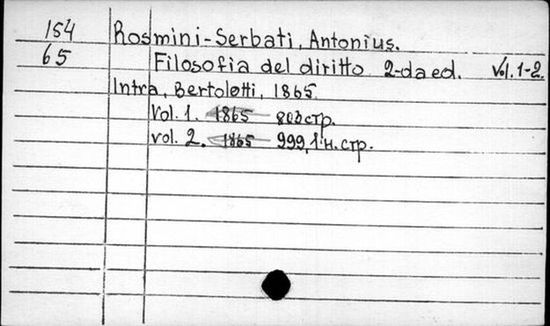 154 Rosmini-Serbati, Antonius.
65 Filosofia del diritto 2-da ed. Vol. 1-2.
Intra, Bertolotti, 1865.
Vol. 1. 1865 802 стр.
vol. 2. 1865 999, 1 н. стр.